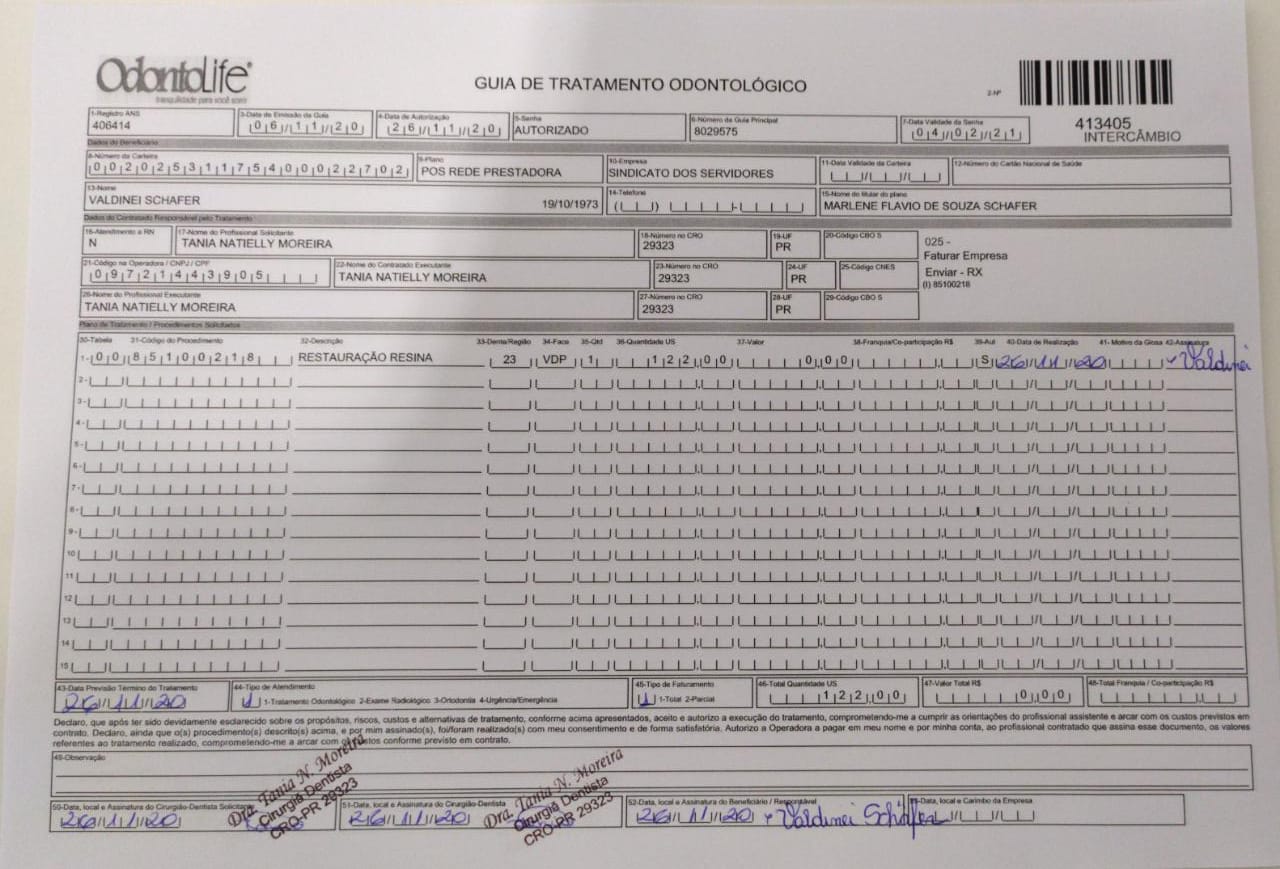 OdontoLife
tranquilidade para você sorrir
GUIA DE TRATAMENTO ODONTOLÓGICO
2-Nº
413405
INTERCÂMBIO
1-Registro ANS 3-Data de Emissão da Guia 4-Data de Autorização 5-Senha 6-Número da Guia Principal 7-Data Validade da Senha
406414 06/11/20 26/11/20 AUTORIZADO 8029575 04/02/21
Dados do Beneficiário
8-Número da Carteira 9-Plano 10-Empresa 11-Data Validade da Carteira 12-Número do Cartão Nacional de Saúde
00202531175400022702 POS REDE PRESTADORA SINDICATO DOS SERVIDORES
13-Nome 14-Telefone 15-Nome do titular do plano
VALDINEI SCHAFER 19/10/1973 MARLENE FLAVIO DE SOUZA SCHAFER
Dados do Contratado Responsável pelo Tratamento
16-Atendimento a RN 17-Nome do Profissional Solicitante 18-Número no CRO 19-UF 20-Código CBO S
N TANIA NATIELLY MOREIRA 29323 PR
025 -
Faturar Empresa
Enviar - RX
(I) 85100218
21-Código na Operadora / CNPJ / CPF 22-Nome do Contratado Executante 23-Número no CRO 24-UF 25-Código CNES
09721443905 TANIA NATIELLY MOREIRA 29323 PR
26-Nome do Profissional Executante 27-Número no CRO 28-UF 29-Código CBO S
TANIA NATIELLY MOREIRA 29323 PR
Plano de Tratamento / Procedimentos Solicitados
30-Tabela 31-Código do Procedimento 32-Descrição 33-Dente/Região 34-Face 35-Qtd 36-Quantidade US 37-Valor 38-Franquia/Co-participação R$ 39-Aut 40-Data de Realização 41- Motivo da Glosa 42-Assinatura
1- 00 85100218 RESTAURAÇÃO RESINA 23 VDP 1 122,00 0,00 S 26/11/20 Valdinei
2-
3-
4-
5-
6-
7-
8-
9-
10
11
12
13
14
15
43-Data Previsão Término do Tratamento 44-Tipo de Atendimento 45-Tipo de Faturamento 46-Total Quantidade US 47-Valor Total R$ 48-Total Franquia / Co-participação R$
26/11/20 1 1-Tratamento Odontológico 2-Exame Radiológico 3-Ortodontia 4-Urgência/Emergência 1 1-Total 2-Parcial 122,00 0,00
Declaro, que após ter sido devidamente esclarecido sobre os propósitos, riscos, custos e alternativas de tratamento, conforme acima apresentados, aceito e autorizo a execução do tratamento, comprometendo-me a cumprir as orientações do profissional assistente e arcar com os custos previstos em
contrato. Declaro, ainda que o(s) procedimento(s) descrito(s) acima, e por mim assinado(s), foi/foram realizado(s) com meu consentimento e de forma satisfatória. Autorizo a Operadora a pagar em meu nome e por minha conta, ao profissional contratado que assina esse documento, os valores
referentes ao tratamento realizado, comprometendo-me a arcar com os custos conforme previsto em contrato.
49-Observação
50-Data, local e Assinatura do Cirurgião-Dentista Solicitante 51-Data, local e Assinatura do Cirurgião-Dentista 52-Data, local e Assinatura do Beneficiário / Responsável 53-Data, local e Carimbo da Empresa
26/11/20 26/11/20 26/11/20 Valdinei Schäfer
Dra. Tania N. Moreira
Cirurgiã Dentista
CRO-PR 29323
Dra. Tania N. Moreira
Cirurgiã Dentista
CRO-PR 29323